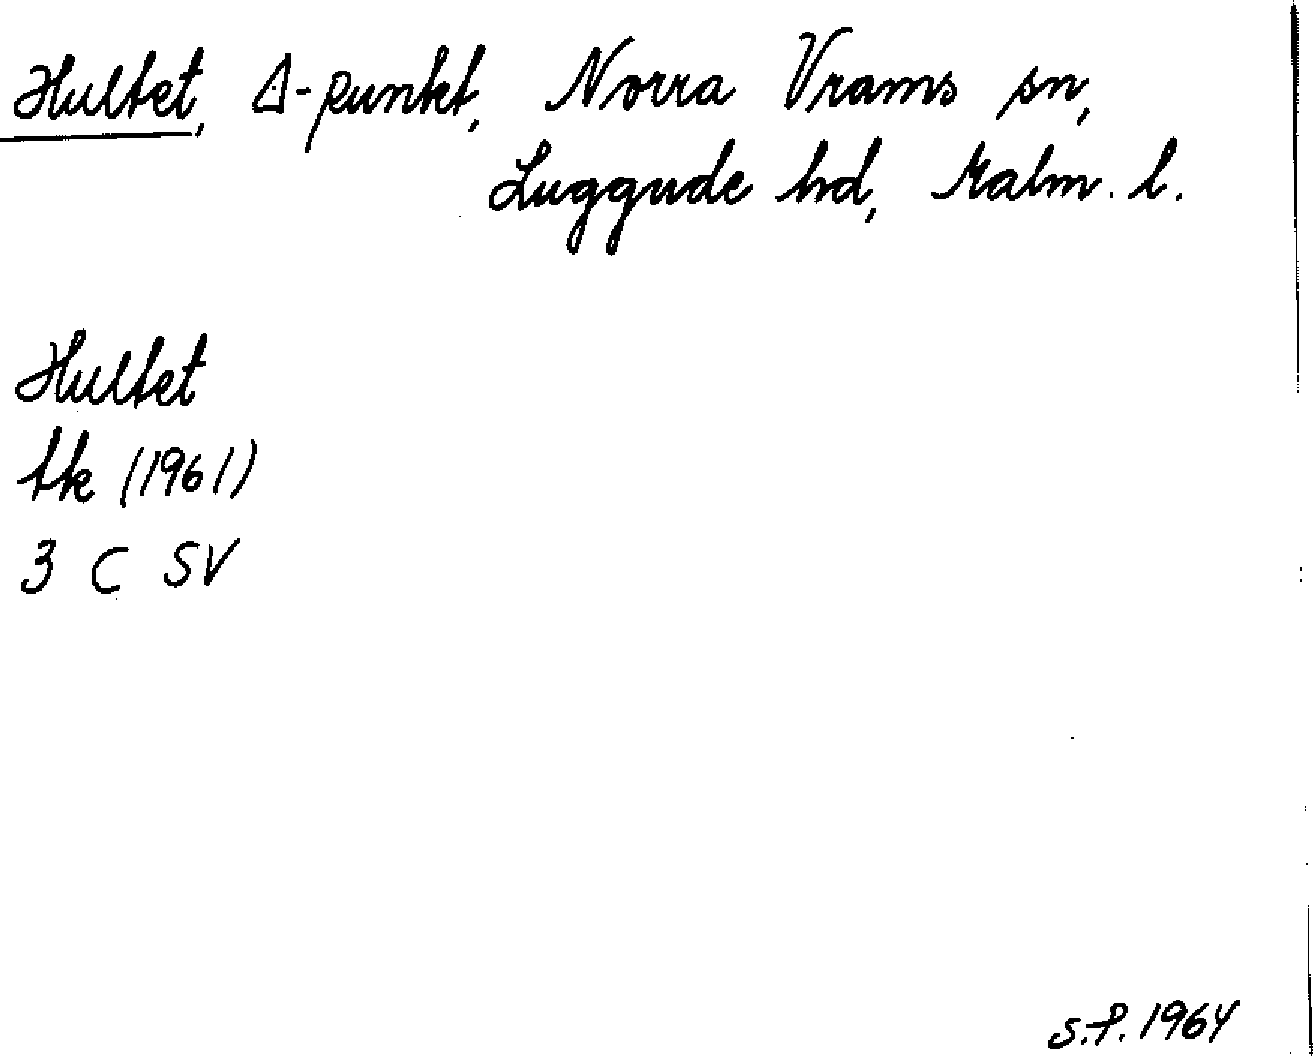 Hultet, Δ-punkt, Norra Vrams sn,
Luggude hd, Malm. l.
Hultet
tk (1961)
3 C SV
S.P. 1964